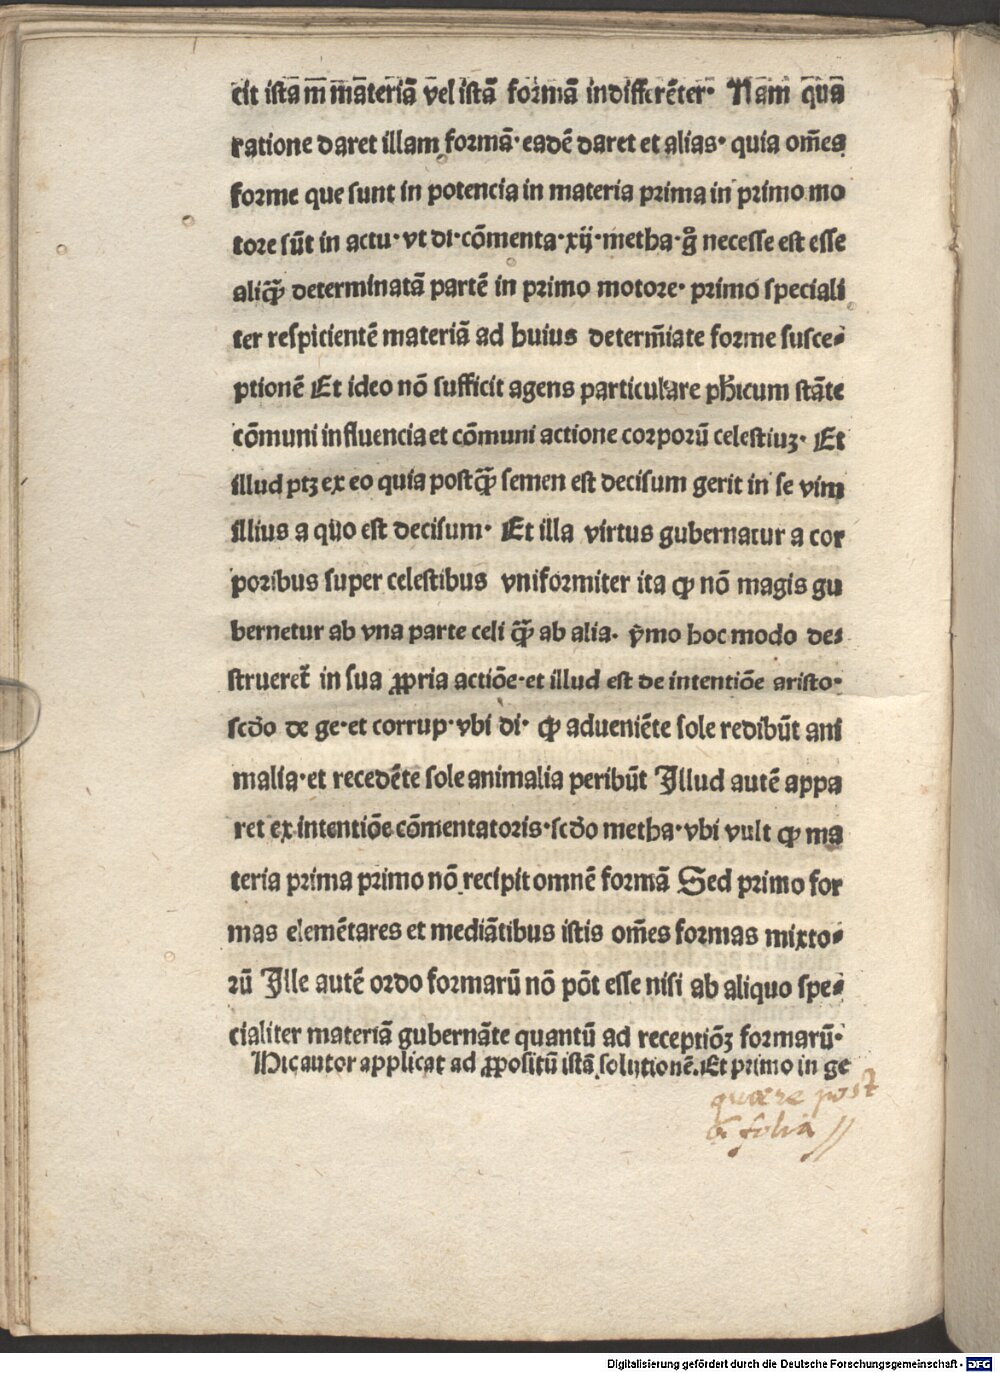 cit istam materiā vel istā formā indifferēter· Nam qua
ratione daret illam formā· eadē daret et alias· quia om̄es
forme que sunt in potencia in materia prima in primo mo
tore sūt in actu· vt di· cōmenta· xij· metha· g̊ necesse est esse
aliq̄ꝫ determinatā partē in primo motore· primo speciali
ter respicientē materiā ad huius determ̄iate forme susce⸗
ptionē Et ideo nō sufficit agens particulare ph̄icum stāte
cōmuni influencia et cōmuni actione corporū celestiuꝫ· Et
illud ptꝫ ex eo quia postq̄ꝫ semen est decisum gerit in se vim
illius a quo est decisum· Et illa virtus gubernatur a cor
poribus super celestibus vniformiter ita ꝙ nō magis gu
bernetur ab vna parte celi q̄ꝫ ab alia· ymo hoc modo de⸗
strueret̄ in sua ꝓpria actiōe· et illud est de intentiōe aristo·
scd̄o de ge· et corrup· vbi di· ꝙ adueniēte sole redibūt ani
malia· et recedēte sole animalia peribūt Illud autē appa
ret ex intentiōe cōmentatoris· scd̄o metha· vbi vult ꝙ ma
teria prima primo nō recipit omnē formā Sed primo for
mas elemētares et mediātibus istis om̄es formas mixto⸗
rū Ille autē ordo formarū nō pōt esse nisi ab aliquo spe⸗
cialiter materiā gubernāte quantū ad receptiōꝫ formarū·
Hic autor applicat ad ꝓpositū istā solutionē. Et primo in ge
quære post
folia //
Digitalisierung gefördert durch die Deutsche Forschungsgemeinschaft - DFG